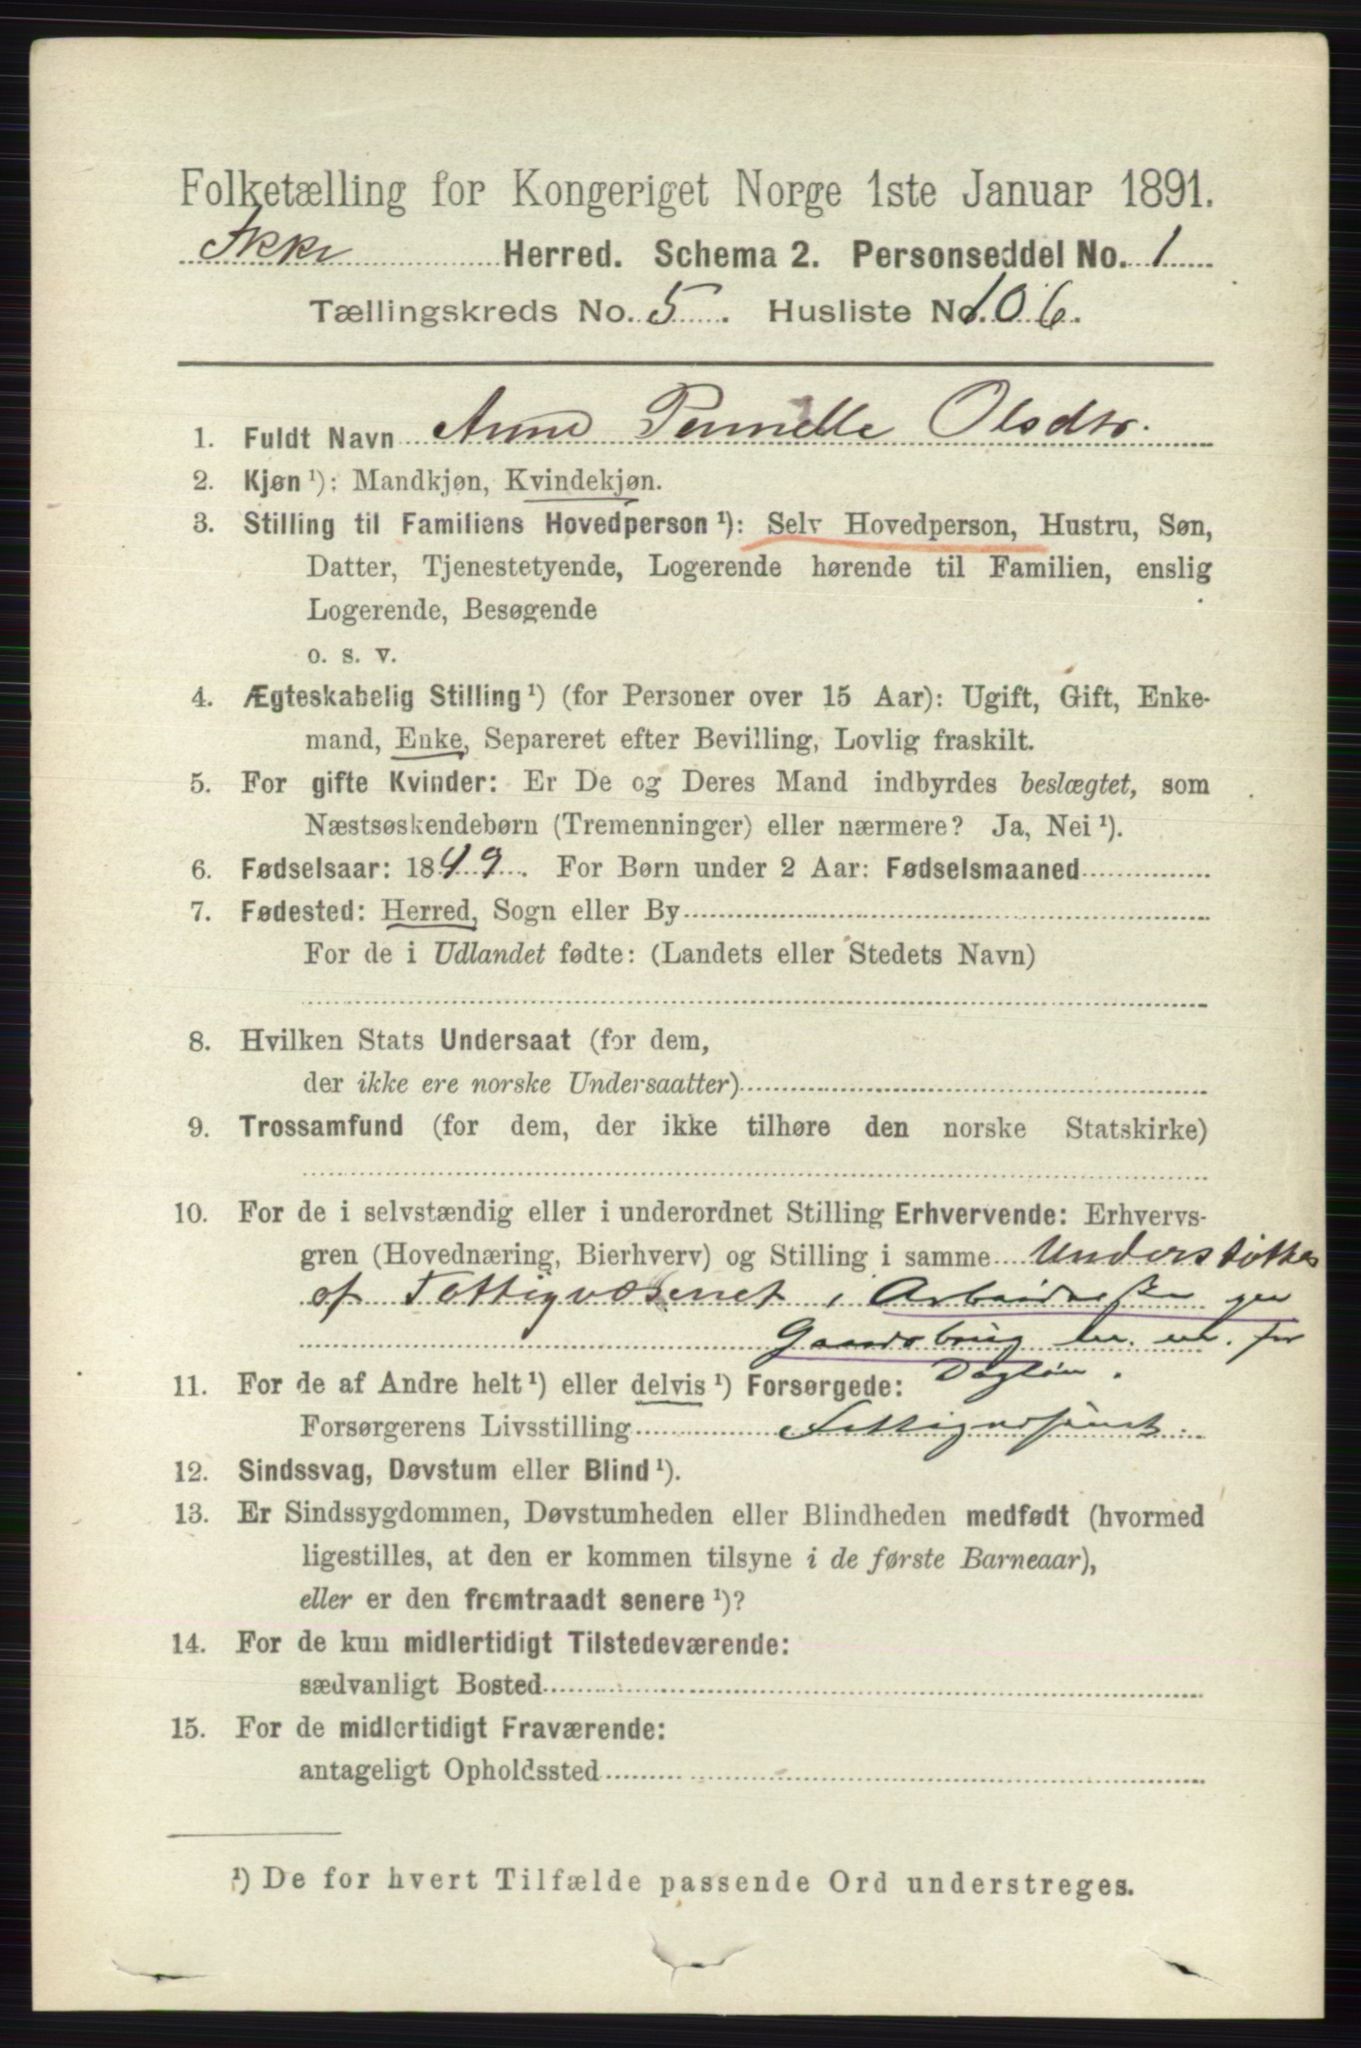 Folketælling for Kongeriget Norge 1ste Januar 1891.
Herred. Schema 2. Personseddel No. 1
Tællingskreds No. 5. Husliste No. 106.
1. Fuldt Navn Anne Pernille Olsdtr.
2. Kjøn ¹): Mandkjøn, Kvindekjøn.
3. Stilling til Familiens Hovedperson ¹): Selv Hovedperson, Hustru, Søn,
Datter, Tjenestetyende, Logerende hørende til Familien, enslig
Logerende, Besøgende
o. s. v.
4. Ægteskabelig Stilling ¹) (for Personer over 15 Aar): Ugift, Gift, Enke-
mand, Enke, Separeret efter Bevilling, Lovlig fraskilt.
5. For gifte Kvinder: Er De og Deres Mand indbyrdes beslægtet, som
Næstsøskendebørn (Tremenninger) eller nærmere? Ja, Nei ¹).
6. Fødselsaar: 1849. For Børn under 2 Aar: Fødselsmaaned
7. Fødested: Herred, Sogn eller By
For de i Udlandet fødte: (Landets eller Stedets Navn)
8. Hvilken Stats Undersaat (for dem,
der ikke ere norske Undersaatter)
9. Trossamfund (for dem, der ikke tilhøre den norske Statskirke)
10. For de i selvstændig eller i underordnet Stilling Erhvervende: Erhvervs-
gren (Hovednæring, Bierhverv) og Stilling i samme Understøttes
af Fattigvæsenet, Arbeiderske
Gaardsbrug m. m. for
11. For de af Andre helt ¹) eller delvis ¹) Forsørgede: Dagløn.
Forsørgerens Livsstilling Fattigvæsenet.
12. Sindssvag, Døvstum eller Blind ¹).
13. Er Sindssygdommen, Døvstumheden eller Blindheden medfødt (hvormed
ligestilles, at den er kommen tilsyne i de første Barneaar),
eller er den fremtraadt senere ¹)?
14. For de kun midlertidigt Tilstedeværende:
sædvanligt Bosted
15. For de midlertidigt Fraværende:
antageligt Opholdssted
¹) De for hvert Tilfælde passende Ord understreges.